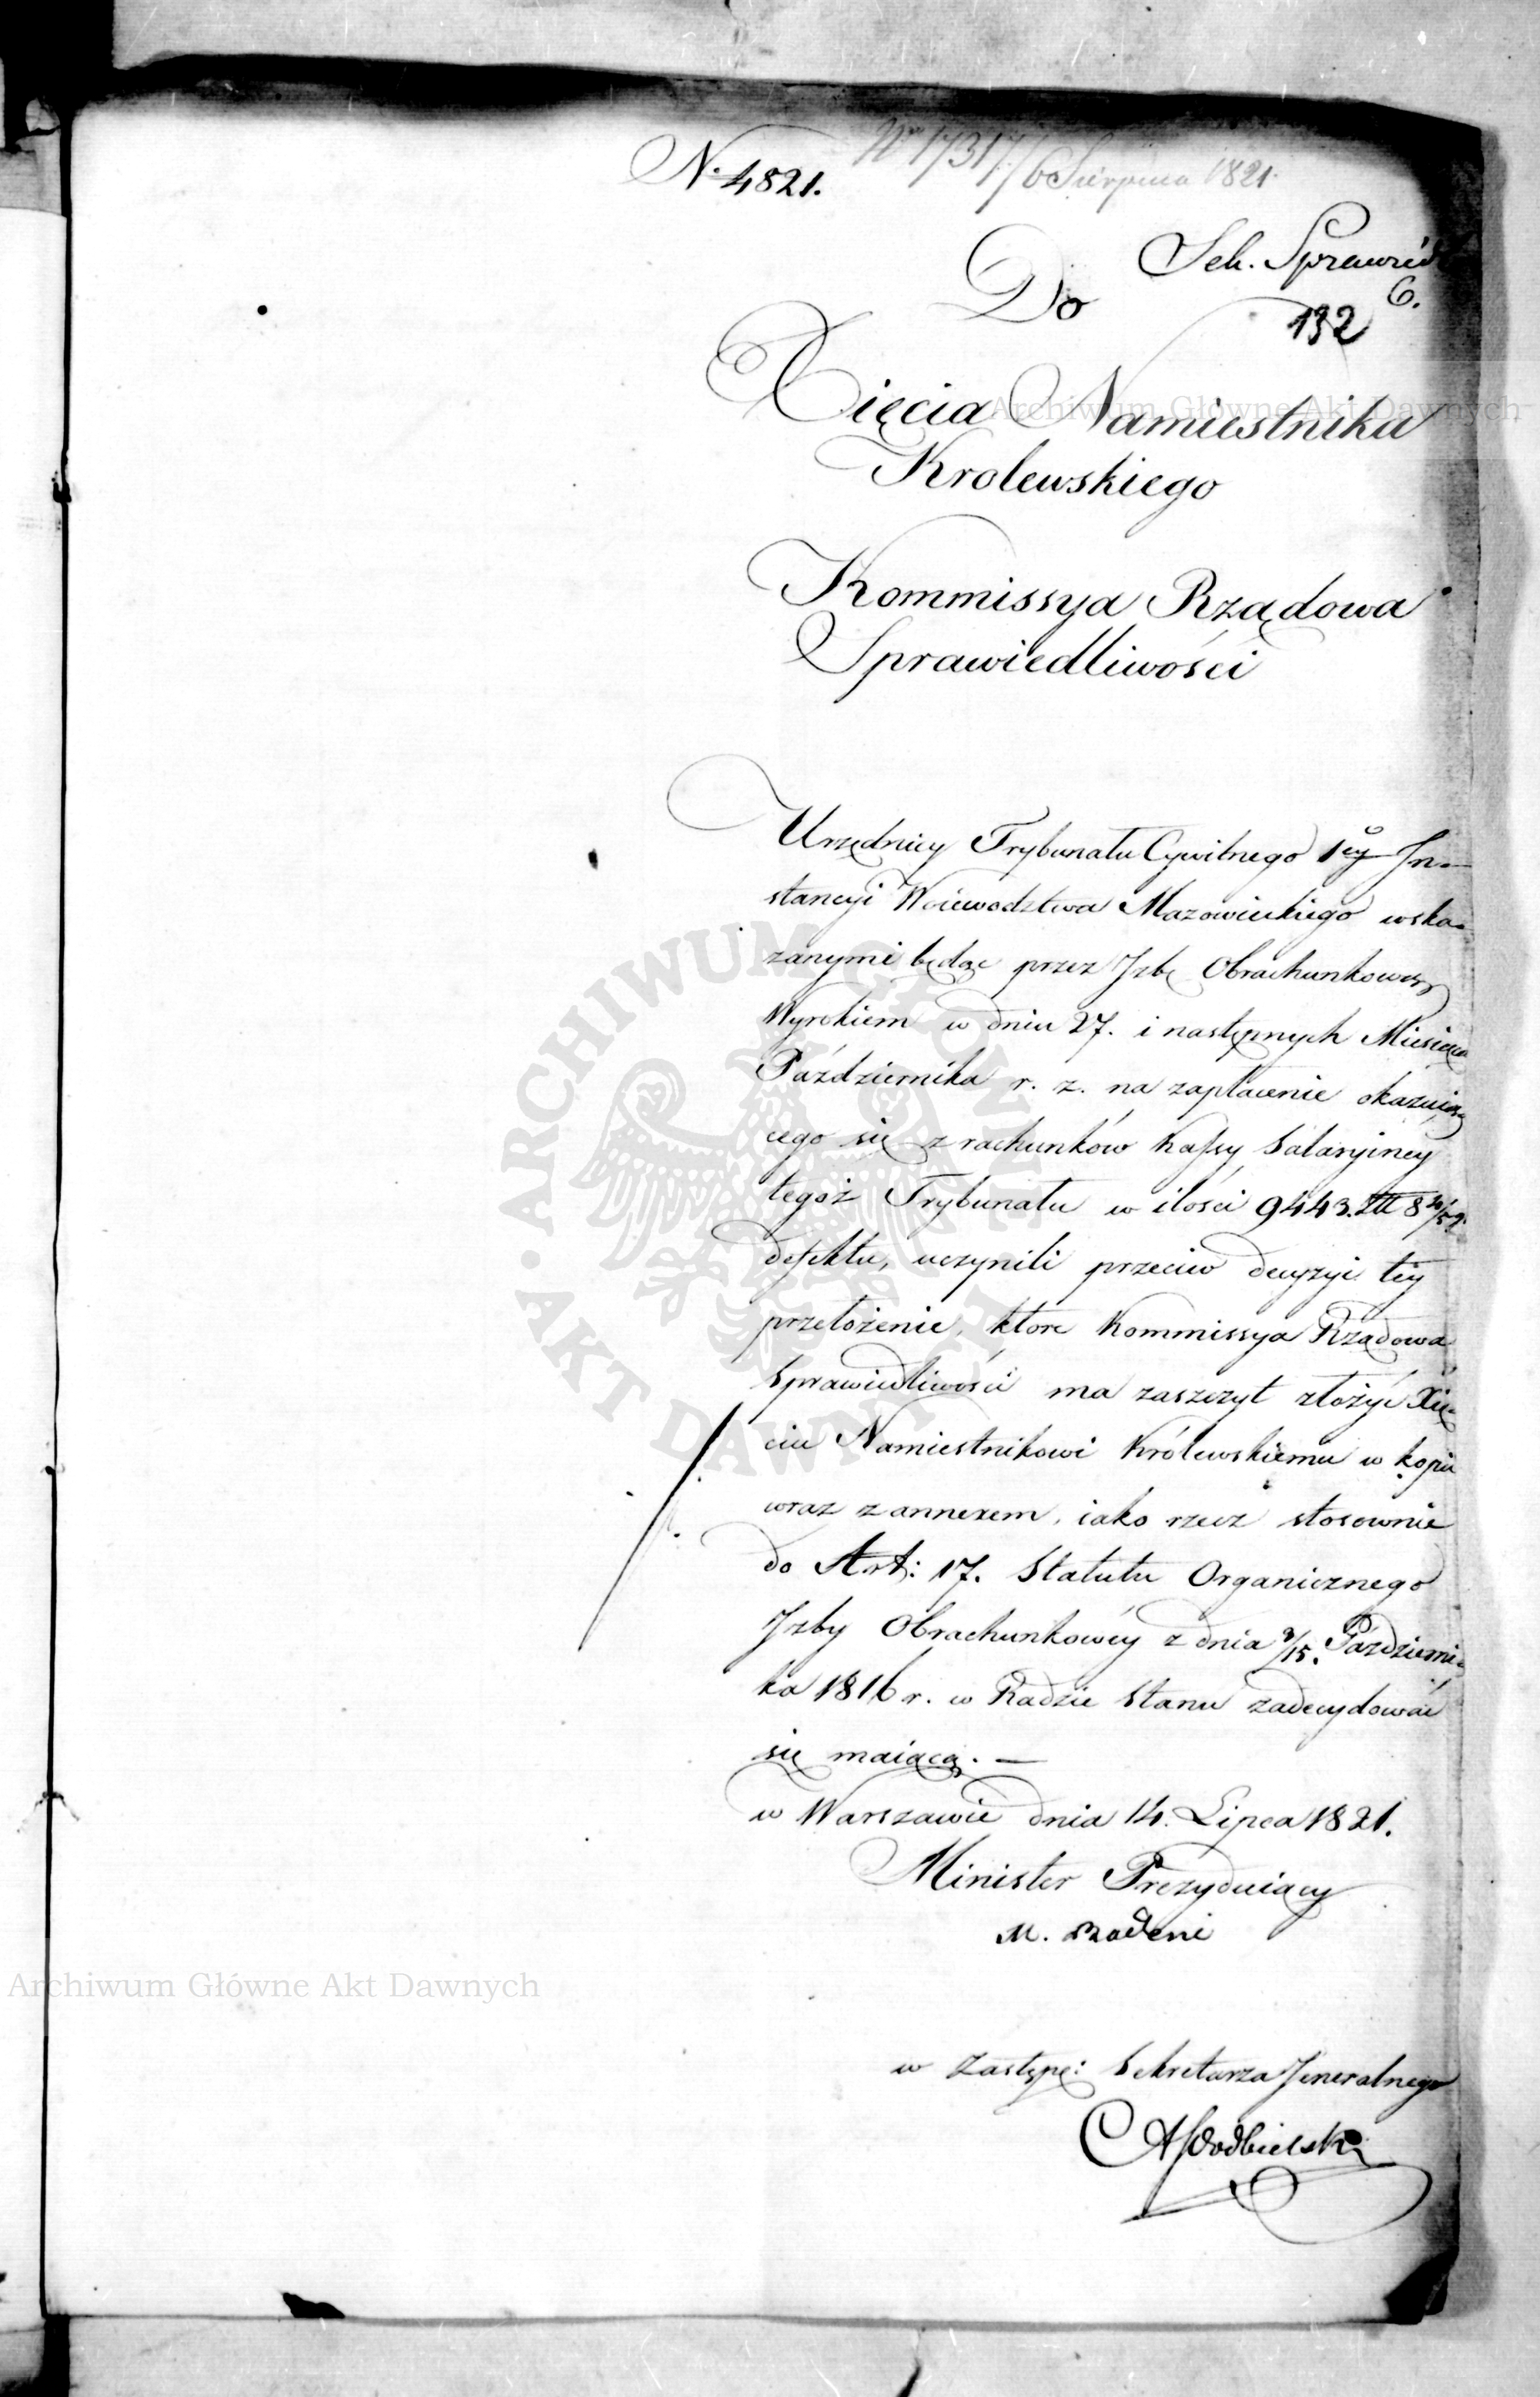 N. 4821.
Nr 17317/6 Sierpnia 1821.
Sek. Sprawied
6.
132
Do
Xięcia Namiestnika
Krolewskiego
Kommissya Rządowa
Sprawiedliwości
Urzędnicy Trybunału Cywilnego 1ey In-
stancyi Woiewodztwa Mazowieckiego wska-
zanymi będąc przez Izbę Obrachunkową
Wyrokiem w dniu 27. i następnych Miesiąca
Października r. z. na zapłacenie okazuią-
cego się z rachunków Kassy Salaryiney
tegoż Trybunału w ilości 9443. 8
defektu, uczynili przeciw decyzyi tey
przełożenie, ktore Kommissya Rządowa
Sprawiedliwości ma zaszczyt złożyć Xię-
ciu Namiestnikowi Królewskiemu w kopii
wraz z annexem, iako rzecz stosownie
do Art: 17. Statutu Organicznego
Izby Obrachunkowéy z dnia 3/15. Październi-
ka 1816 r. w Radzie Stanu zadecydować
się maiącą. —
w Warszawie dnia 14. Lipca 1821.
Minister Prezyduiący
M. Badeni
w Zastępę: Sekretarza Jeneralnego
Podbielski
Archiwum Główne Akt Dawnych
Archiwum Główne Akt Dawnych
ARCHIWUM GŁÓWNE • AKT DAWNYCH •